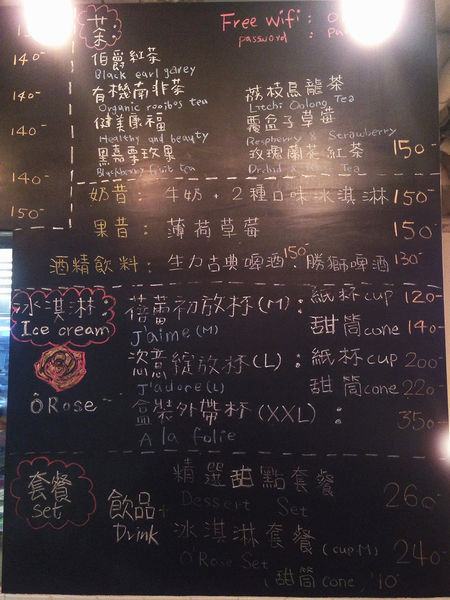 140-
140-
140-
140-
150-
茶:
Free Wifi:
password:
伯爵紅茶
Black earl garey
有機南非茶
Organic rooibos tea
健美康福
Healthy and beauty
黑嘉麗玫果
Blackberry fruit tea
荔枝烏龍茶
Litchi Oolong Tea
覆盆子草莓
Respberry & Strawberry
玫瑰蘭花紅茶 150-
Tea
奶昔: 牛奶 + 2種口味冰淇淋 150-
果昔: 薄荷草莓 150-
酒精飲料: 生力古典啤酒 150- 勝獅啤酒 130-
冰淇淋:
Ice cream
Ô Rose
蓓蕾初放杯(M): 紙杯cup 120-
J'aime(M) 甜筒cone 140-
恣意綻放杯(L): 紙杯cup 200-
J'adore(L) 甜筒cone 220-
盒裝外帶杯(XXL): 350-
A la folie
套餐
Set
飲品+
Drink
精選甜點套餐 260-
Dessert Set
冰淇淋套餐 (cup.M) 240-
O'Rose Set
(甜筒cone)